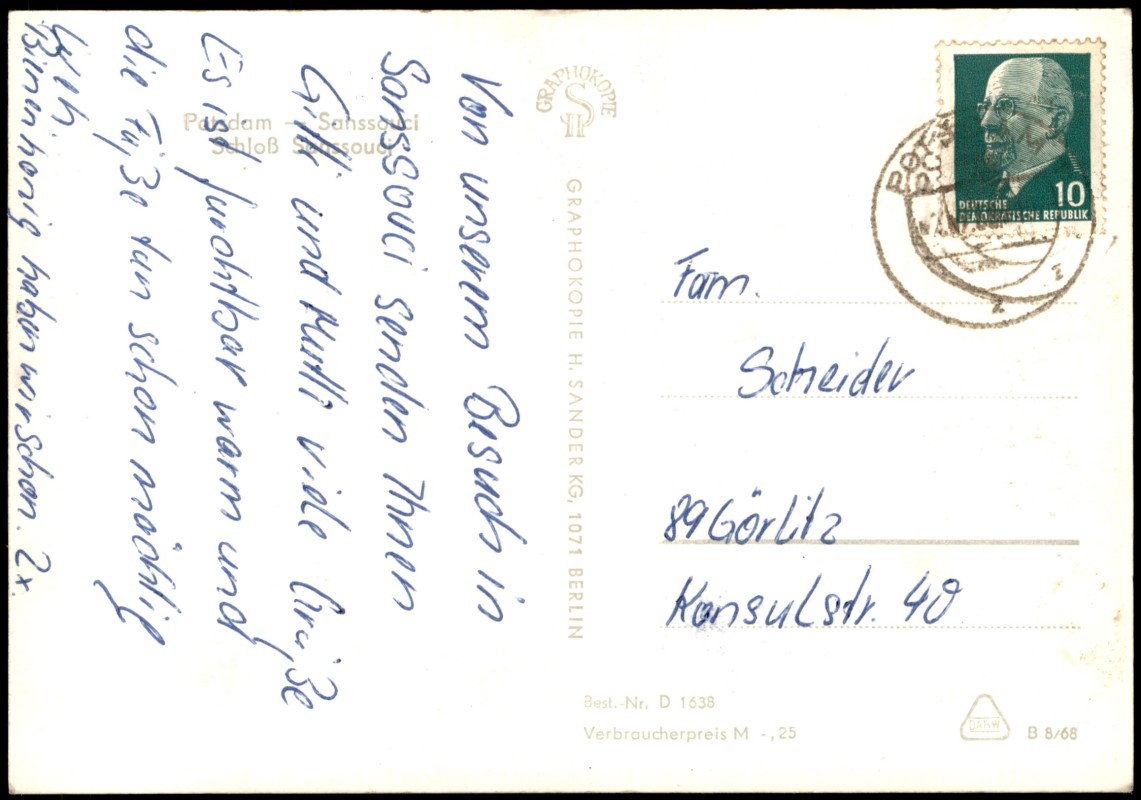 Potsdam — Sanssouci
Schloß Sanssouci
Von unserem Besuch in
Sanssouci senden Ihnen
und Mutti viele Grüße
Es ist furchtbar warm und
die Füße tun schon mächtig
weh.
Bienenhonig haben wir schon. 2x.
GRAPHOKOPIE
GRAPHOKOPIE H. SANDER KG, 1071 BERLIN
10
DEUTSCHE
DEMOKRATISCHE REPUBLIK
Fam.
Schneider
89 Görlitz
Konsulstr. 40
Best.-Nr. D 1638
Verbraucherpreis M -,25
DAHW
B 8/68